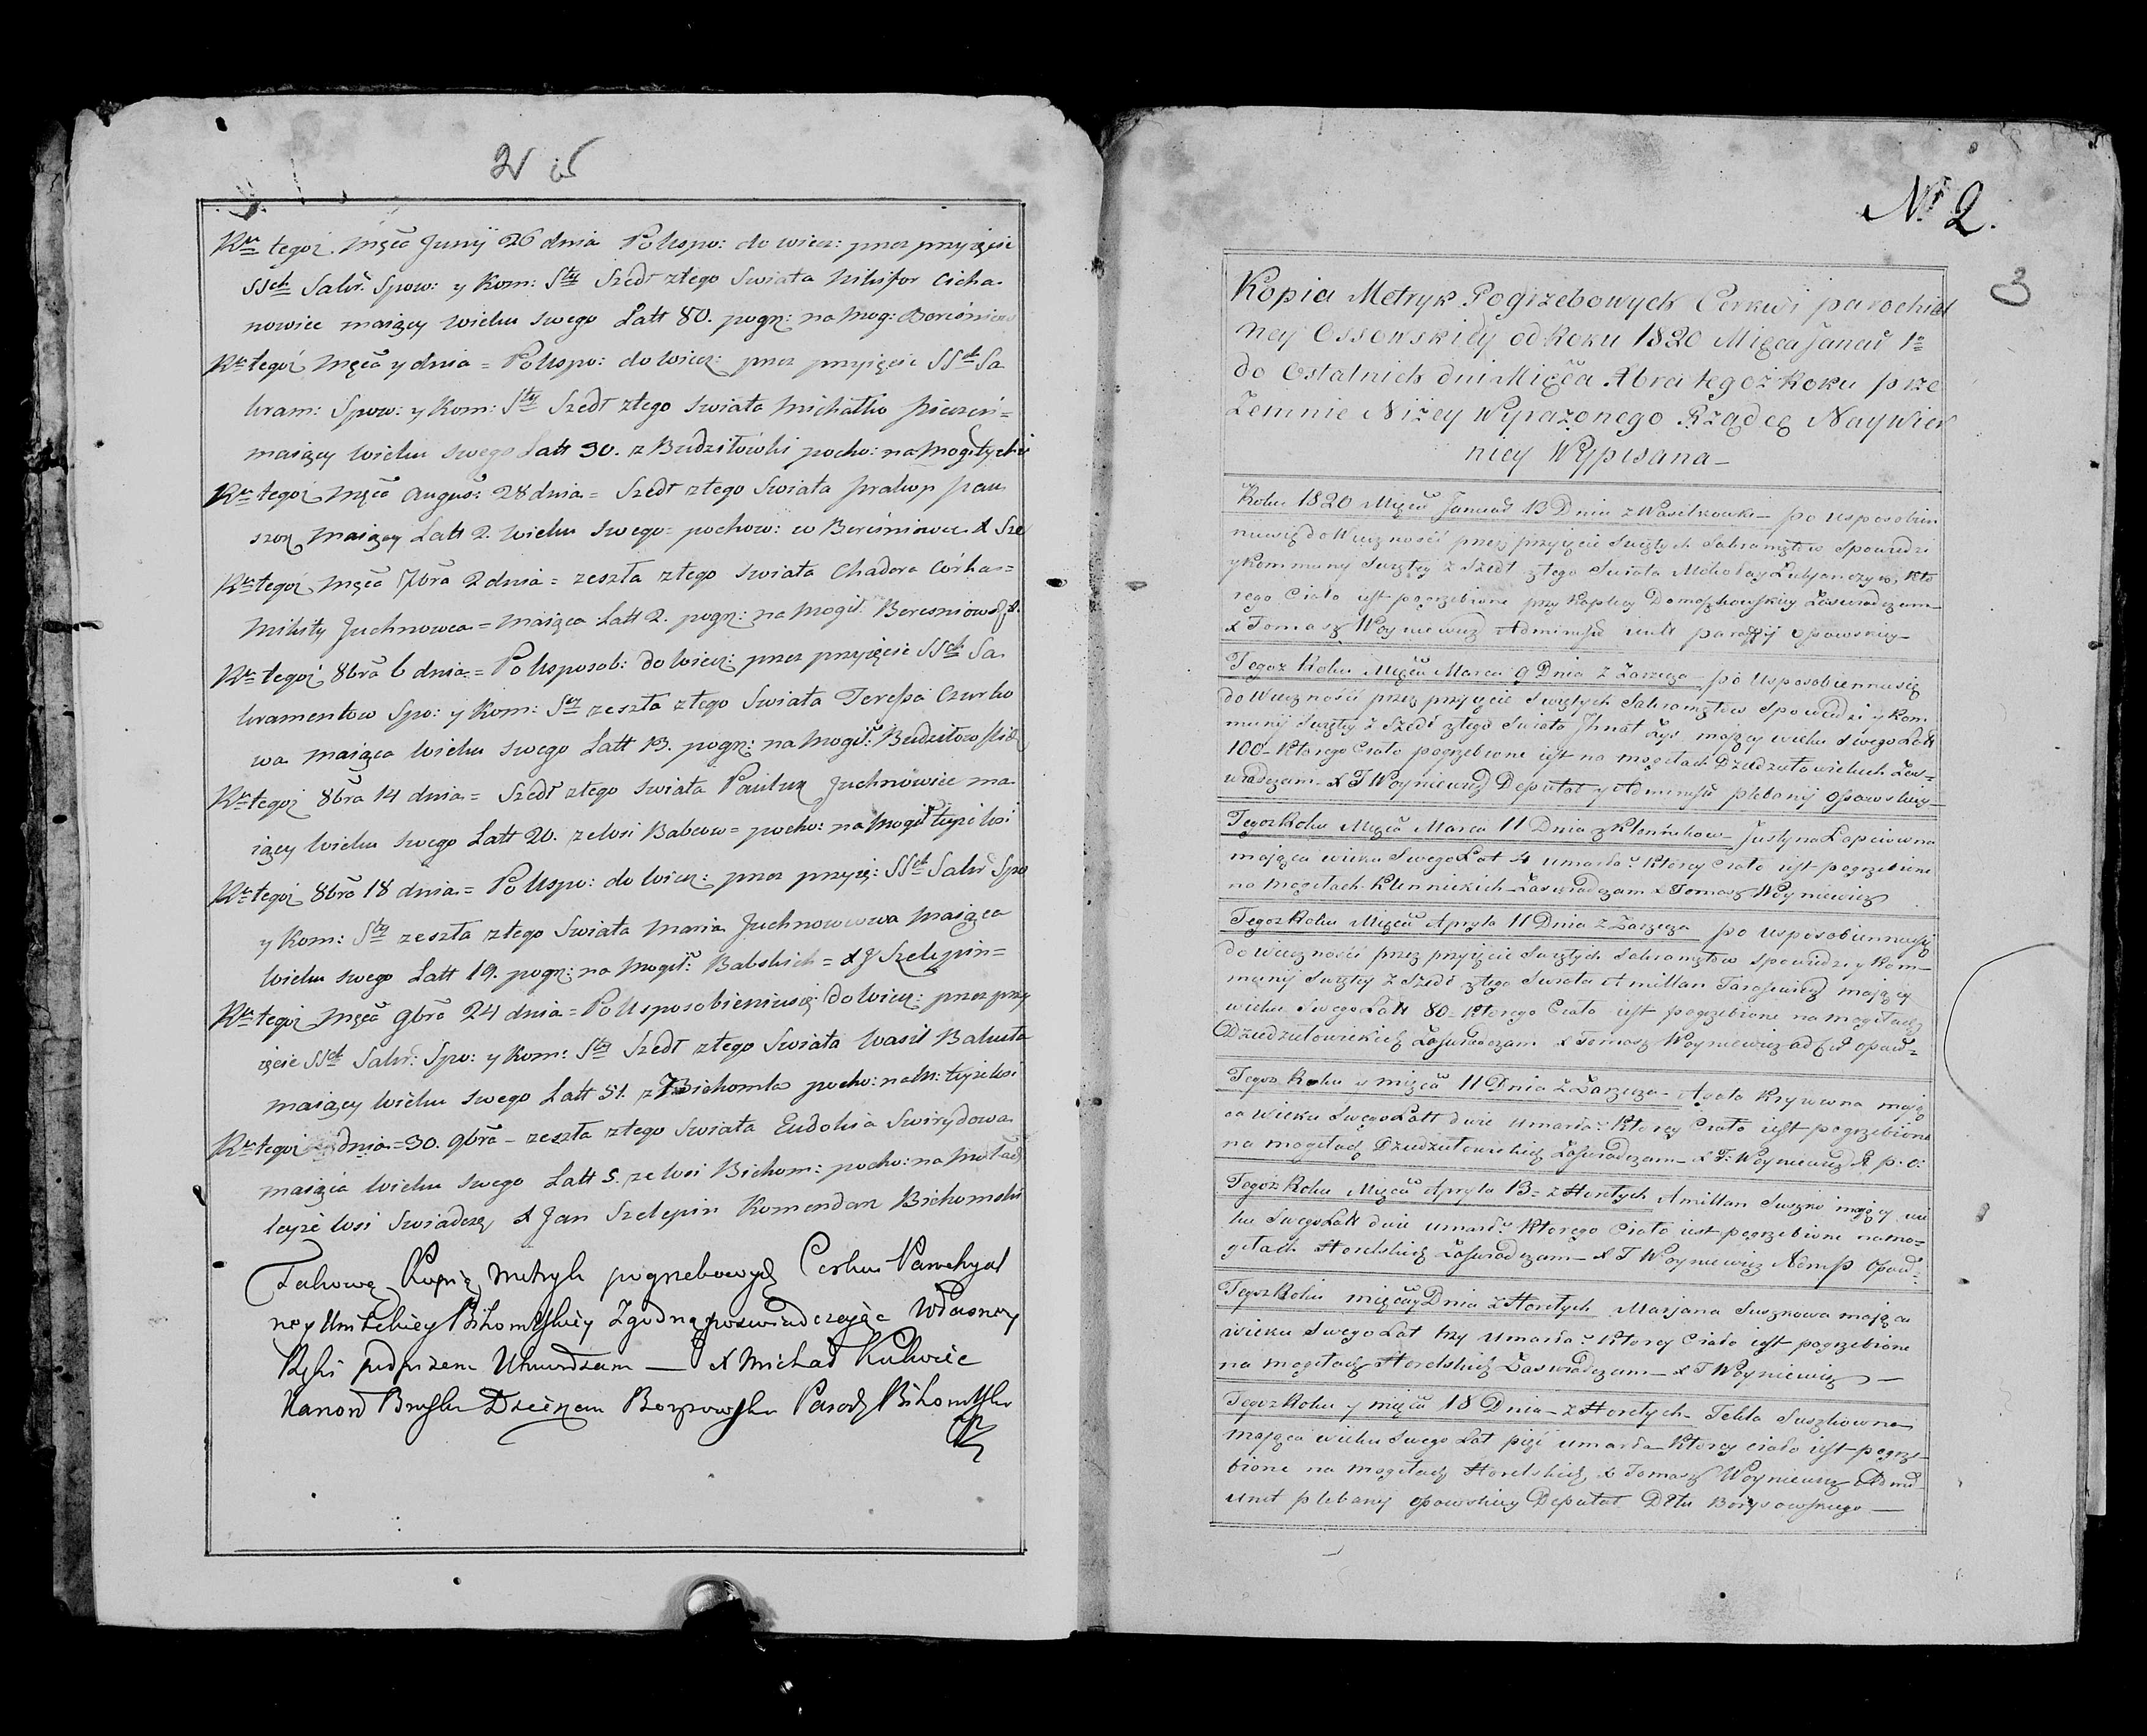 2
Rku tegoż Mscã Junij 26 dnia Po Uspo: do wiecz: przez przyięcie
SSch Sakr: Spow: y Kom: Stey Szedł z tego Swiata Nikifor Cicha
nowiec maiący wieku swego Latt 80. pogrz: na Mog: Bereśniow
Rku tegoż Mscã y dnia = Po Uspo: do wiecz: przez przyięcie SSch Sa
kram: Spow: y Kom: Stey Szedł z tego swiata Michałko
maiący wieku swego Latt 90. z Budziłówki pocho: na Mogiłych
Rku tegoż Mscã Augus: 28 dnia = Szedł z tego Swiata Prakop
maiący Latt 2. wieku swego = pochow: w Bereśniowce X Sze
Rku tegoż Mscã 7bra 2 dnia = zeszła z tego swiata Chadora Córka =
Mikity Juchnowca = maiąca Latt 2. pogrz: na Mogił: Beresniows
Rku tegoż 8bra 6 dnia = Po Usposob: do wiecz: przez przyięcie SSch Sa
kramentow Spo: y Kom: Stey zeszła z tego Swiata Teressa Czurko
wa maiąca wieku swego Latt 13. pogrz: na Mogił: Budziłowskich
Rku tegoż 8bra 14 dnia = Szedł z tego swiata Pauluk Juchnowiec ma
iący wieku swego Latt 20. ze wsi Babcow = pocho: na Mogił teyże wsi
Rku tegoż 8bra 18 dnia = Po Uspo: do wiecz: przez przyię: SSch Sakr Spo
y Kom: Stey zeszła z tego Swiata Maria Juchnowcowa maiąca
wieku swego Latt 19. pogrz: na Mogił: Babskich = X J Szelepin =
Rku tegoż Mscã 9bra 24 dnia = Po Usposobieniusię do wiecz: przez przy
ięcie SSch Sakr: Spo: y Kom: Stey Szedł z tego Swiata Wasil Bakuta
maiący wieku swego Latt 51. z Bichomla pocho: na M: teyże wsi
Rku tegoż dnia = 30. 9bra – zeszła z tego Swiata Eudokia Swirydowa
maiąca wieku swego Latt 5. ze wsi Bichom: pocho: na
teyże wsi Swiadczę X Jan Szelepin Komendarz Bichomski
Takową Kopią metryk pogrzebowych Cerkwi Parochyal
ney Unitskiey Bihomlskiey Zgodną poswiadczaiąc Własney
Ręki podpisem Utwierdzam — X Michał Kulwiec
Kanon Dziekan Borysowski Paroch Bihomlski
№ 2.
3
Kopia Metryk Pogrzebowych Cerkwi parochial
ney Ossowskiey od Roku 1820 Miesca Januar 1o
do Ostatnich dni Miesca Xbra tegoż Roku prze
Zemnie Niżey Wyrażonego Rządcę Naywier
niey Wypisana –
Roku 1820 Miesca Januar 13 Dnia z Wasilkowki – po Usposobien
niusię do Wieczności przez przyięcie Swiętych Sakramętow Spowiedzi
y kommuny Swiętey z Szedł z tego Swiata Mikołay któ
rego Ciało iest pogrzebione przy kaplicy Zaswiadczam
X Tomasz Woyniewicz Administr: parafij osowskiey –
Tegoz Roku Miesca Marca 9 Dnia z Zarzecza – po Usposobienniusię
do Wieczności przez przyięcie Swiętych Sakramętow Spowiedzi y Kom
munij Swiętey z Szedł z tego Swiata Ihnat Łys maiący wieku Swego Latt
100 – Ktorego Ciało pogrzebione iest na mogiłach Dziedziłowickich Zas=
wiadczam – X T Woyniewicz Deputat y Administr plebanij osowskiey –
Tegoz Roku Miesca Marca 11 Dnia z Klennikow – Justyna Łapciowna
maiąca wieku Swego Lat 4 umarła Ktorey Ciało iest pogrzebione
na mogiłach Klennickich Zaswiadczam X Tomasz Woyniewicz
Tegoz Roku Miesca Apryla 11 Dnia z Zarzecza po usposobienniusię
do wieczności przez przyięcie Swiętych Sakramętow Spowiedzi y Kom–
munij Swiętey z Szedł z tego Swiata Amillan Tarasiewicz maiący
wieku Swego Latt 80 – Ktorego Ciało iest pogrzebione na mogiłach
Dziedziłowickich Zaswiadczam X Tomasz Woyniewicz
Tegoz Roku y miesca 11 Dnia z Zarzecza – Agata Krywcowna maią
ca wieku Swego Latt dwie umarła Ktorey Ciało iest pogrzebione
na mogiłach Dziedziłowickich Zaswiadczam – X T: Woyniewicz A p: o:
Tegoz Roku Miesca Apryla 13 – z Horełych Amillan Suszko maiący wie
ku Swego Latt dwie umarł Ktorego Ciało iest pogrzebione na mo=
giłach Horelskich Zaswiadczam – X T Woyniewicz
Tegoz Roku miesca y Dnia z Horełych Marjana Suszkowa maiąca
wieku Swego Lat trzy umarła Ktorey Ciało iest pogrzebione
na mogiłach Horelskich Zaswiadczam – X T Woyniewicz –
Tegoz Roku y miesca 18 Dnia – z Horełych – Tekla Suszkowna
maiąca wieku Swego Lat pięć umarła Ktorey ciało iest pogrze
bione na mogiłach Horelskich X Tomasz Woyniewicz Admi
Unit plebany osowskiey Deputat Borysowskiego –